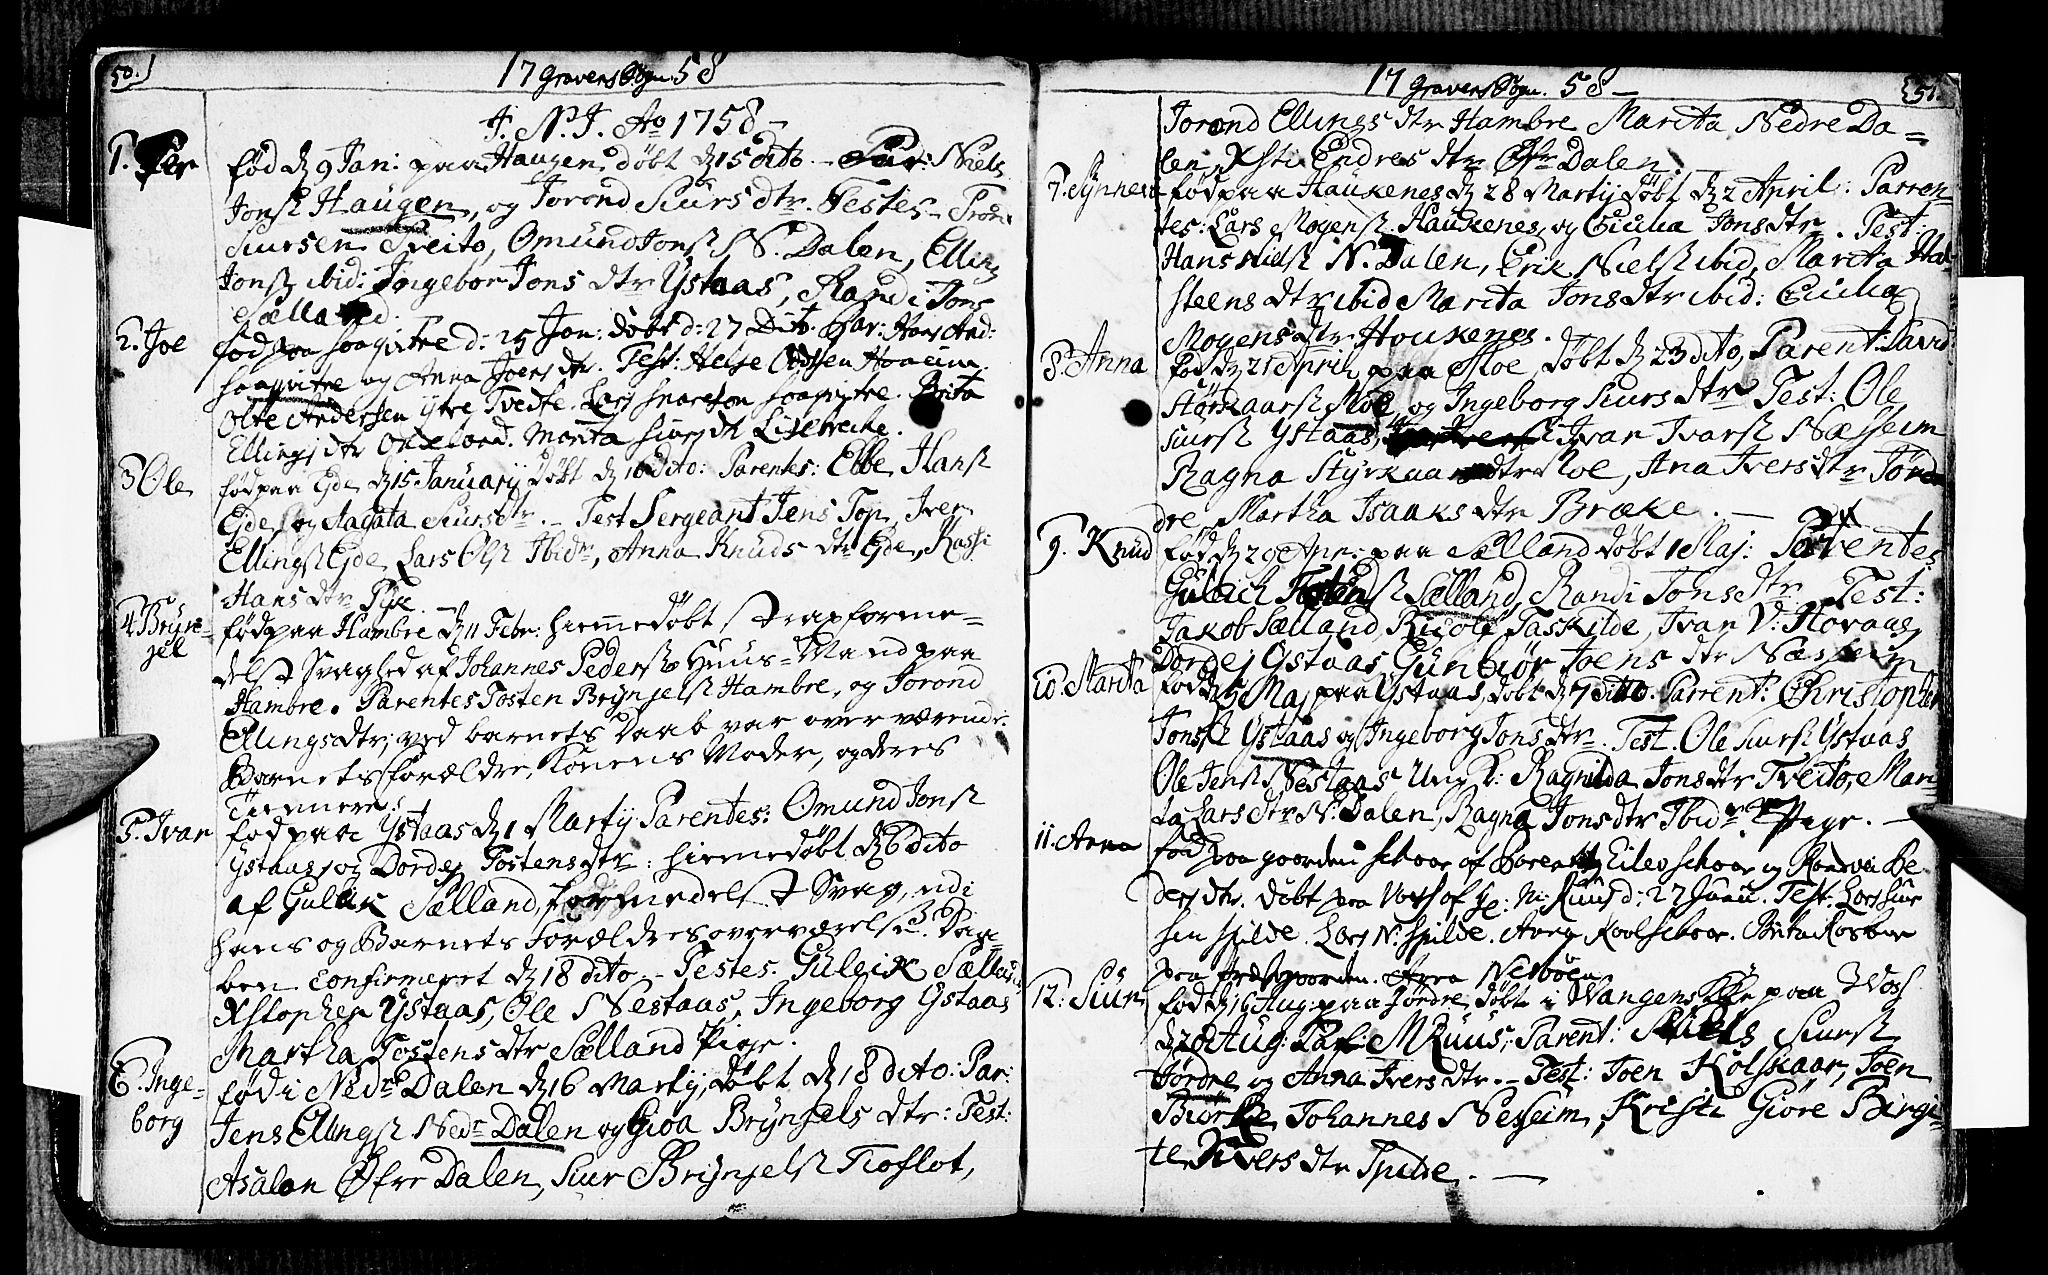 50.)
17 Gravens Sogn 58
J. N. J. Ao 1758 -
1. Per
fød d 9 Jan: paa Haugen, døbt d 15 dito - Par: Niels
Jonss Haugen, og Torond Siurs dtr. Testes -
Siursen Tveito, Omund Jonss N. Dalen, Elling
Jonss ibid: Ingebor Jons dtr Ystaas, Randi Jons
Sælland.
2. Joe
fød paa d: 25 Jan: døbt d: 27 Dito. Par:
og Anna Joens dtr. Test: Helje
Andersen ytre Tvedte. Brita
Ellings dtr Marita Siurs dtr Lislebreche.
3 Ole
fød paa Ejde d 15 January døbt d dito: Parentes: Ebbe Hanss
Ejde og Aagata Siursdtr. - Test Sergeant Jens Top, Iver
Ellingss Ejde, Lars Olss Ibid, Anna Knuds dtr Ejde,
Hans dtr
4. Bryn-
jel
fød paa Hambre d 11 Febr: hiemedøbt strax forme-
delst Svaghed af Johannes Pederss Huus-Mand paa
Hambre. Parentes Tosten Brynjelss Hambre, og Torond
Ellingsdtr; ved barnets Daab var overværende
Barnets forældre, Konens Moder, og deres
5. Ivar
fød paa Ystaas d 1 Marty Parentes: Omund Jonss
Ystaas og Dordej Tostensdtr: hiemedøbt d 6 dito
af Guleik Sælland, formedelst Svag, udi
hans og Barnets Forældres overværelse. Daa-
ben confirmeret d 18 dito - Testes. Guleik Sælland
Xstopher Ystaas, Ole Nestaas, Ingeborg Ystaas
Martha Tostens dtr Sælland Pige.
6. Inge-
borg
fød i Nedr Dalen d 16 Marty, døbt d 18 dito: Par:
Jens Ellingss Nedr Dalen og Gioa Brynjels dtr: Test:
Asalon Øfre Dalen, Siur Brynjelss Tioflot,
17 Gravens Sogn. 58 -
51.
Torond Ellings dtr Hambre Marita Nedre Da-
len, Xsti Endres dtr Øfr Dalen.
7. Synneva
fød paa Haukenes d 28 Marty døbt d 2 April: Parren-
tes: Lars Mogenss Haukenes, og Cicilia Jonsdtr. Test:
Hans Nielss N. Dalen, Erik Nielss ibid, Marita Hal-
steens dtr ibid Marita Jonsdtr ibid: Cicilia
Mogens dtr Houkenes.
8. Anna
fød d 21 April paa Moe, døbt d 23 dito, Parent: David
Størkaarss Moe, og Ingeborg Siurs dtr Test: Ole
Siurss Ystaas, Ivar Ivarss Næsheim
Ragna Styrkaars dtr Moe, Ana Ivers dtr Tør-
dre, Martha Isaaks dtr Bræke. -
9. Knud
fød d 20 Apr: paa Sælland døbt 1 Maj: Parentes
Guleich Sælland, Randi Jonsdtr Test:
Jakob Sælland, Taskilde, Ivar V: Hovaas,
Dordej Ystaas Gunbiør Joens dtr Næsheim
10. Marita
fød d 5 Maj paa Ystaas, døbt d 7 dito. Parrent: Christopher
Jonss Ystaas og Ingeborg Jons dtr. Test. Ole Siurss Ystaas
Ole Jenss Nestaas Ung K: Ragnilda Jonsdtr Tveito, Mari-
ta Lars dtr N: Dalen, Ragna Jonsdtr Ibidr Pige. -
11. Anna
fød paa gaarden Skoar af Parentes Eilev Skoar og Randvei Pe-
ders dtr. døbt paa Vos af M: Ruus d: 27 Test: Lars Siur
sen Spilde. Lars N: Spilde. Skoar. Brita
12: Siur
fød d 16 Aug: paa Tørdre, døbt i Wangens Kke paa Vos
d 20 Aug: M Ruus, Parent: Siurss
Tørdre og Anna Ivers dtr. - Test: Joen Kolskaar, Joen
Biørke, Johannes Nesheim, Kristi Giøre Birgi-
te Sivers dtr Spilde. -